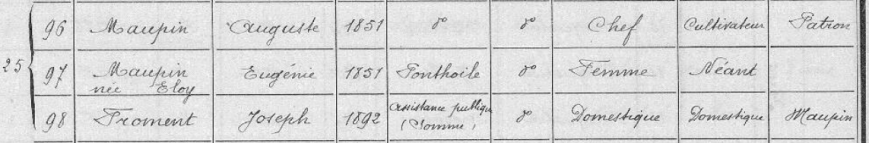 96 Maupin Auguste 1851 d° d° Chef Cultivateur Patron
25 97 Maupin Eugénie 1851 Ponthoile d° Femme Néant
née Eloy
98 Froment Joseph 1892 Assistance publique d° Domestique Domestique Maupin
(Somme)